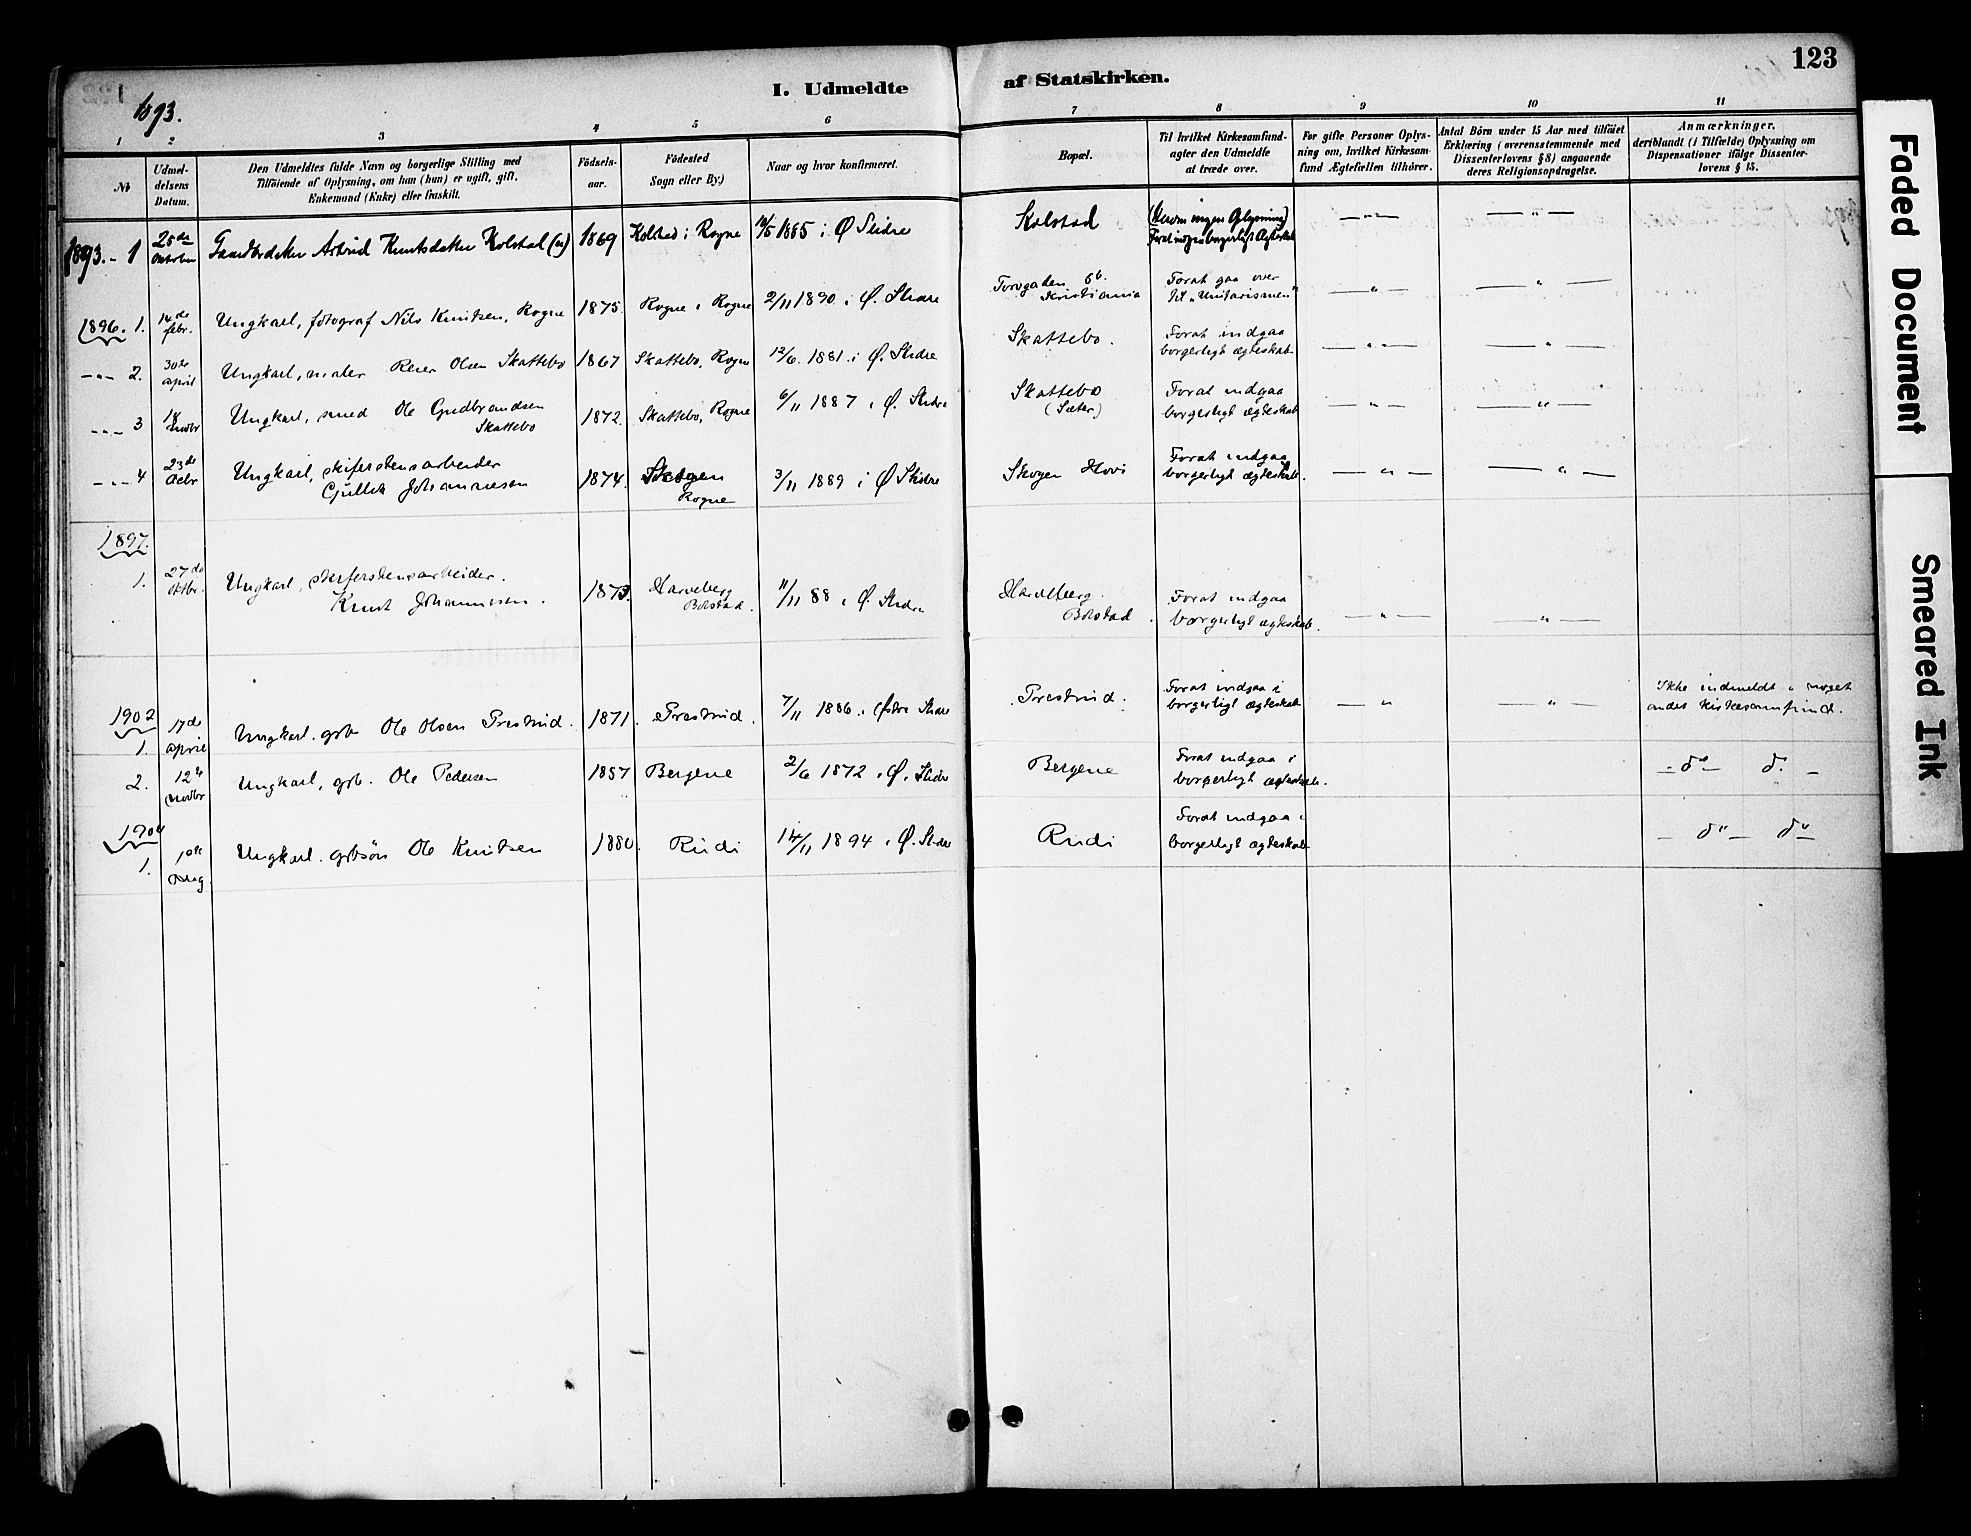 123
I. Udmeldte af Statskirken.
1893.
1 2 3 4 5 6 7 8 9 10 11
№
Udmel-
delsens
Datum.
Den Udmeldtes fulde Navn og borgerlige Stilling med
Tilföiende af Oplysning, om han (hun) er ugift, gift,
Enkemand (Enke) eller fraskilt.
Födsels-
aar.
Födested
Sogn eller By.)
Naar og hvor konfirmeret.
Bopæl.
Til hvilket Kirkesamfund-
agter den Udmeldte
at træde over.
For gifte Personer Oplys-
ning om, hvilket Kirkesam-
fund Ægtefællen tilhörer.
Antal Börn under 15 Aar med tilföiet
Erklæring (overensstemmende med
Dissenterlovens § 8) angaaende
deres Religionsopdragelse.
Anmærkninger,
deriblandt (i Tilfælde) Oplysning om
Dispensationer ifölge Dissenter-
lovens § 15.
1893. - 1 25de Oktober Gaardbrdatter Astrid Knutsdatter Kolstad 1869 Kolstad i Rogne 1885 i Ø Slidre Kolstad (Herom ingen Oplysning)
— " — — " —
1896. 1. 14de febr. Ungkarl, fotograf Nils Knutsen, Rogne 1875. Rogne i Rogne 2/11 1890 i Ø. Slidre Torvgaden 6b. Kristiania Forat gaa over til "Unitarismen"
— " — — " —
— " — 2. 30te april Ungkarl, maler Reier Olsen Skattebo 1867 Skattebo, Rogne 12/6 1881 i Ø. Slidre Skattebo. Forat indgaa borgerligt ægteskab
— " — — " —
— " — 3 18 novbr Ungkarl, smed Ole Gudbrandsen Skattebo 1872. Skattebo, Rogne 6/11 1887 i Ø. Slidre Skattebo (Sæter) Forat indgaa borgerligt ægteskab
— " — — " —
— " — 4 23de Decbr Ungkarl, skiferstensarbeider Gullik Johannesen 1874. Skogen Rogne 3/11 1889 i Ø Slidre Skogen Hovi Forat indgaa borgerligt ægteskab.
— " — — " —
1897.
1. 27de oktbr. Ungkarl, skiferstensarbeider. Knut Johannesen. 1873. Harveberg Bolstad. 11/11 88 i Ø. Slidre Harveberg. Bolstad. Forat indgaa borgerligt ægteskab.
— " — — " —
1902
1. 17de april Ungkarl. grb. Ole Olsen Prestrud. 1871. Prestrud. 7/11 1886 i Østre Slidre Prestrud. Forat indgaa i borgerligt ægteskab
— " — — " — Ikke indmeldt i noget andet kirkesamfund.
2. 12te novbr Ungkarl, grb. Ole Pedersen 1857 Bergene 2/6 1872 i Ø. Slidre Bergene Forat indgaa i borgerligt ægteskab.
— do — do —
1904
1. 1ste Aug. Ungkarl. grbsøn Ole Knutsen 1880. Rudi 14/11 1894 i Ø. Slidre Rudi Forat indgaa i borgerligt ægteskab
— do — do —
Faded Document
Smeared Ink